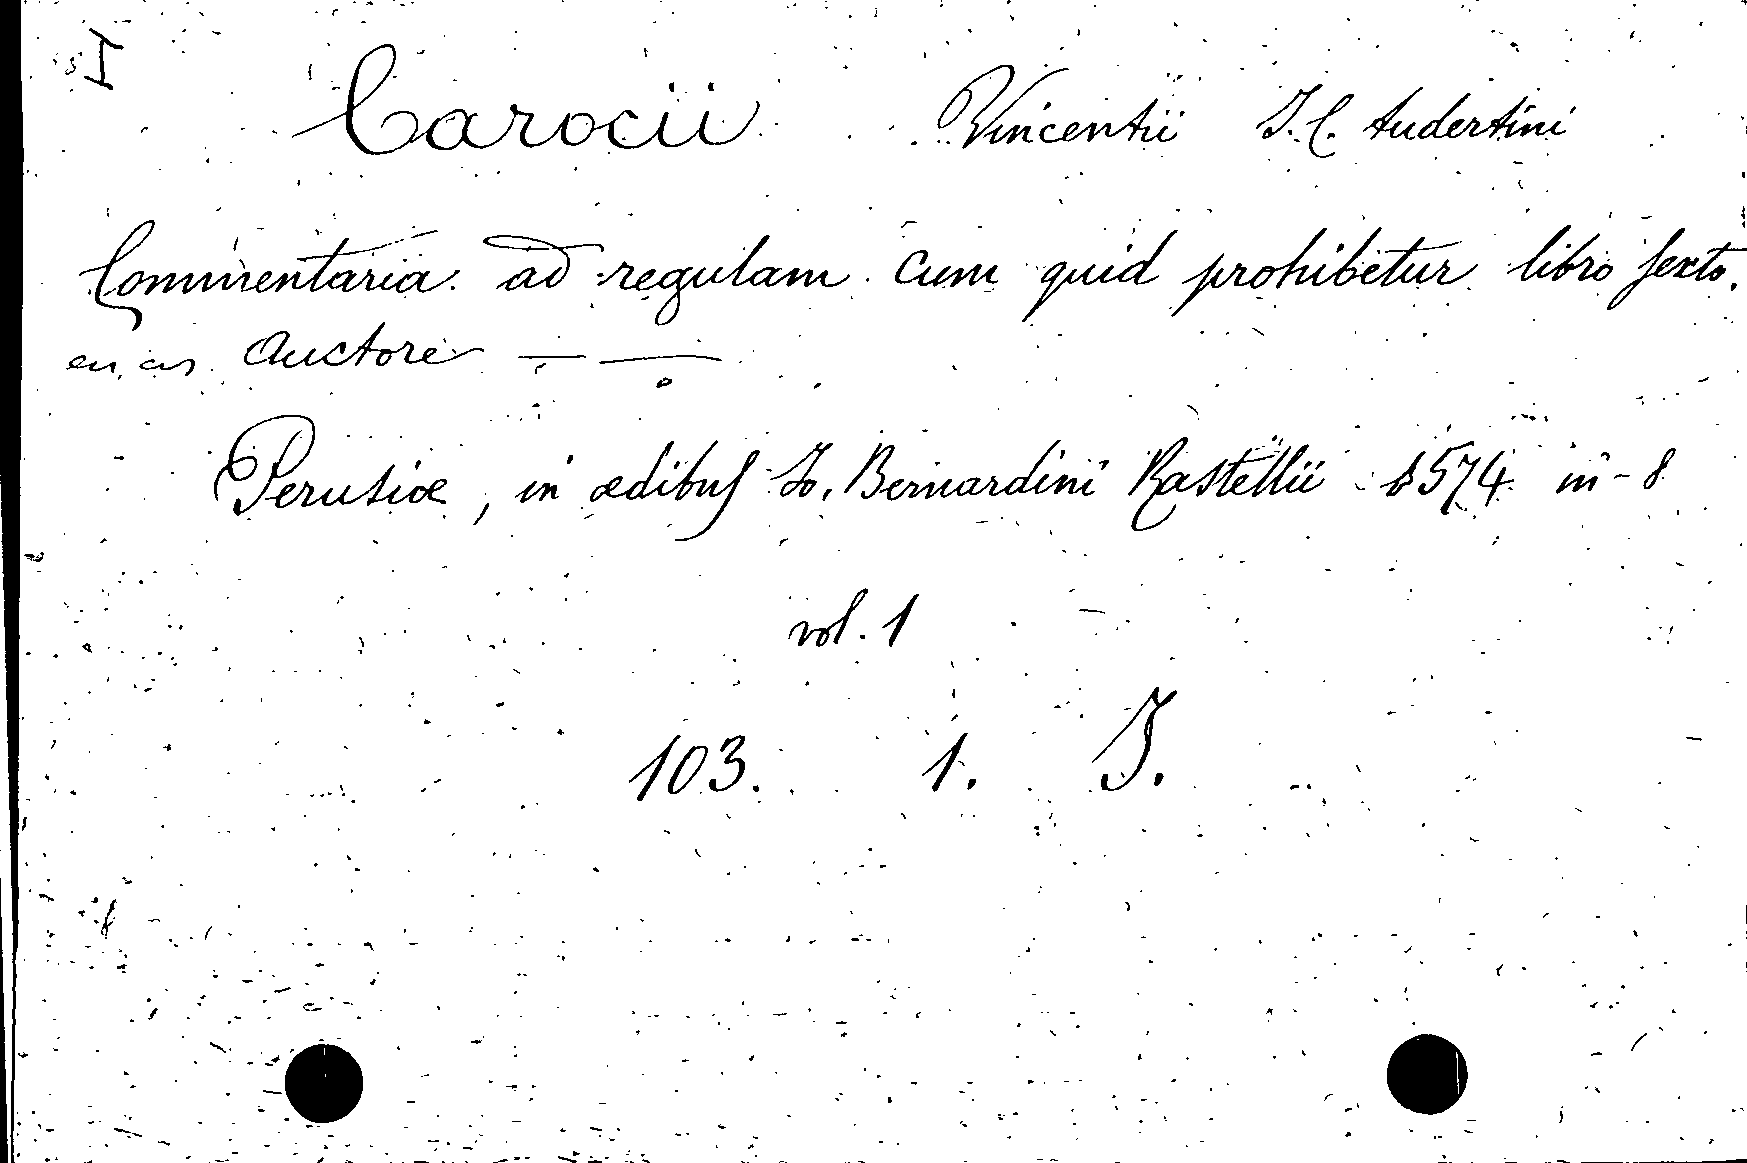 I
Carocii Vincentii J. C. tudertini
Commentaria ad regulam cum quid prohibetur libro sexto.
Auctore — —
Perusiæ, in ædibus Jo. Bernardini Rastellii 1574 in-8
vol. 1
103. 1. J.